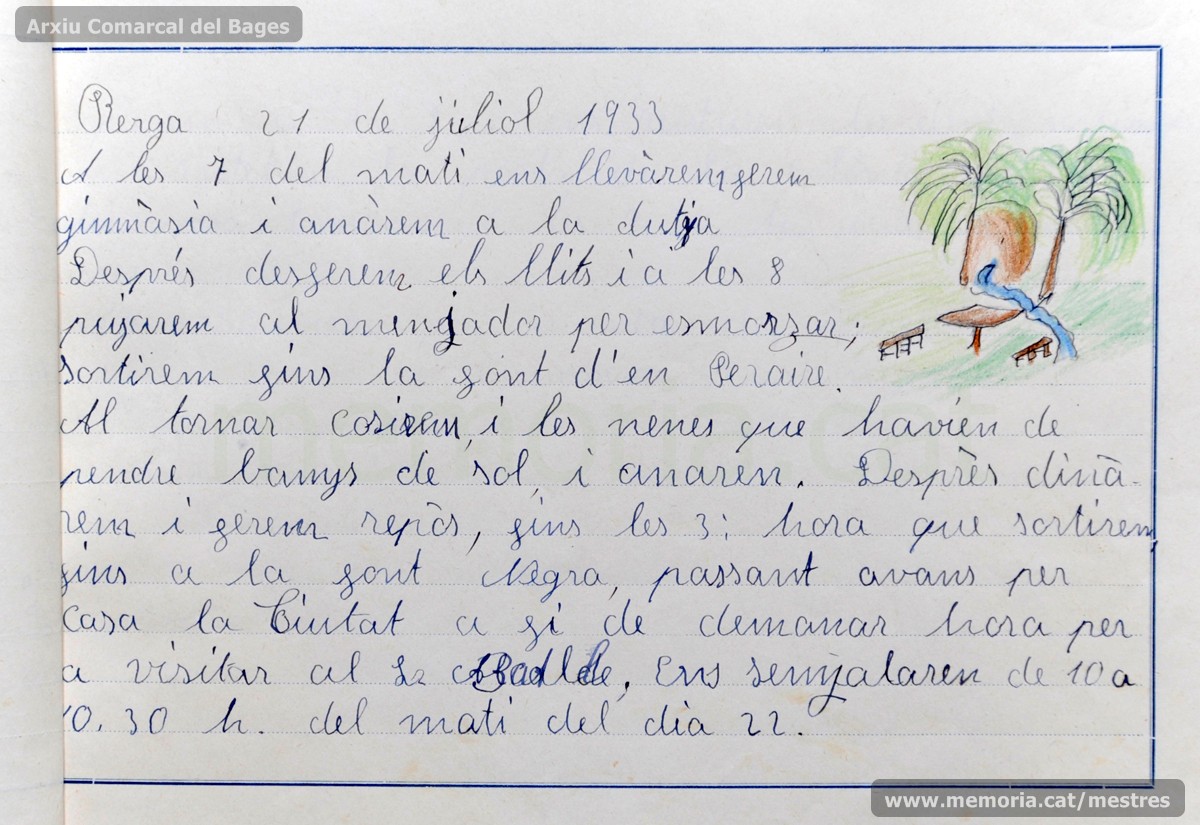 Arxiu Comarcal del Bages
Berga 21 de juliol 1933
A les 7 del mati ens llevàrem, ferem
gimnàsia i anàrem a la dutja
Després desferem els llits i a les 8
pujarem al menjador per esmorzar;
sortirem fins la font d'en Peraire.
Al tornar cosirem, i les nenes que havien de
pendre banys de sol, i anaren. Desprès dinà-
rem i ferem repòs, fins les 3; hora que sortirem
fins a la font Negra, passant avans per
casa la Ciutat a fi de demanar hora per
a visitar al Sr Batlle, Ens senyalaren de 10 a
10.30 h. del mati del dia 22.
memoria.cat
www.memoria.cat/mestres